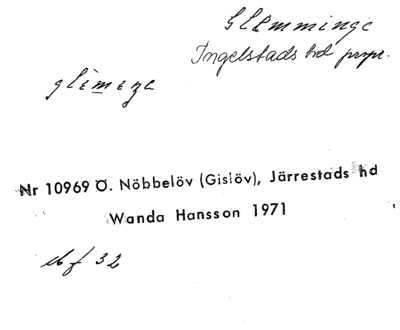 Glemminge
Ingelstads hd prpr.
glèmeŋe
Nr 10969 Ö. Nöbbelöv (Gislöv), Järrestads hd
Wanda Hansson 1971
32